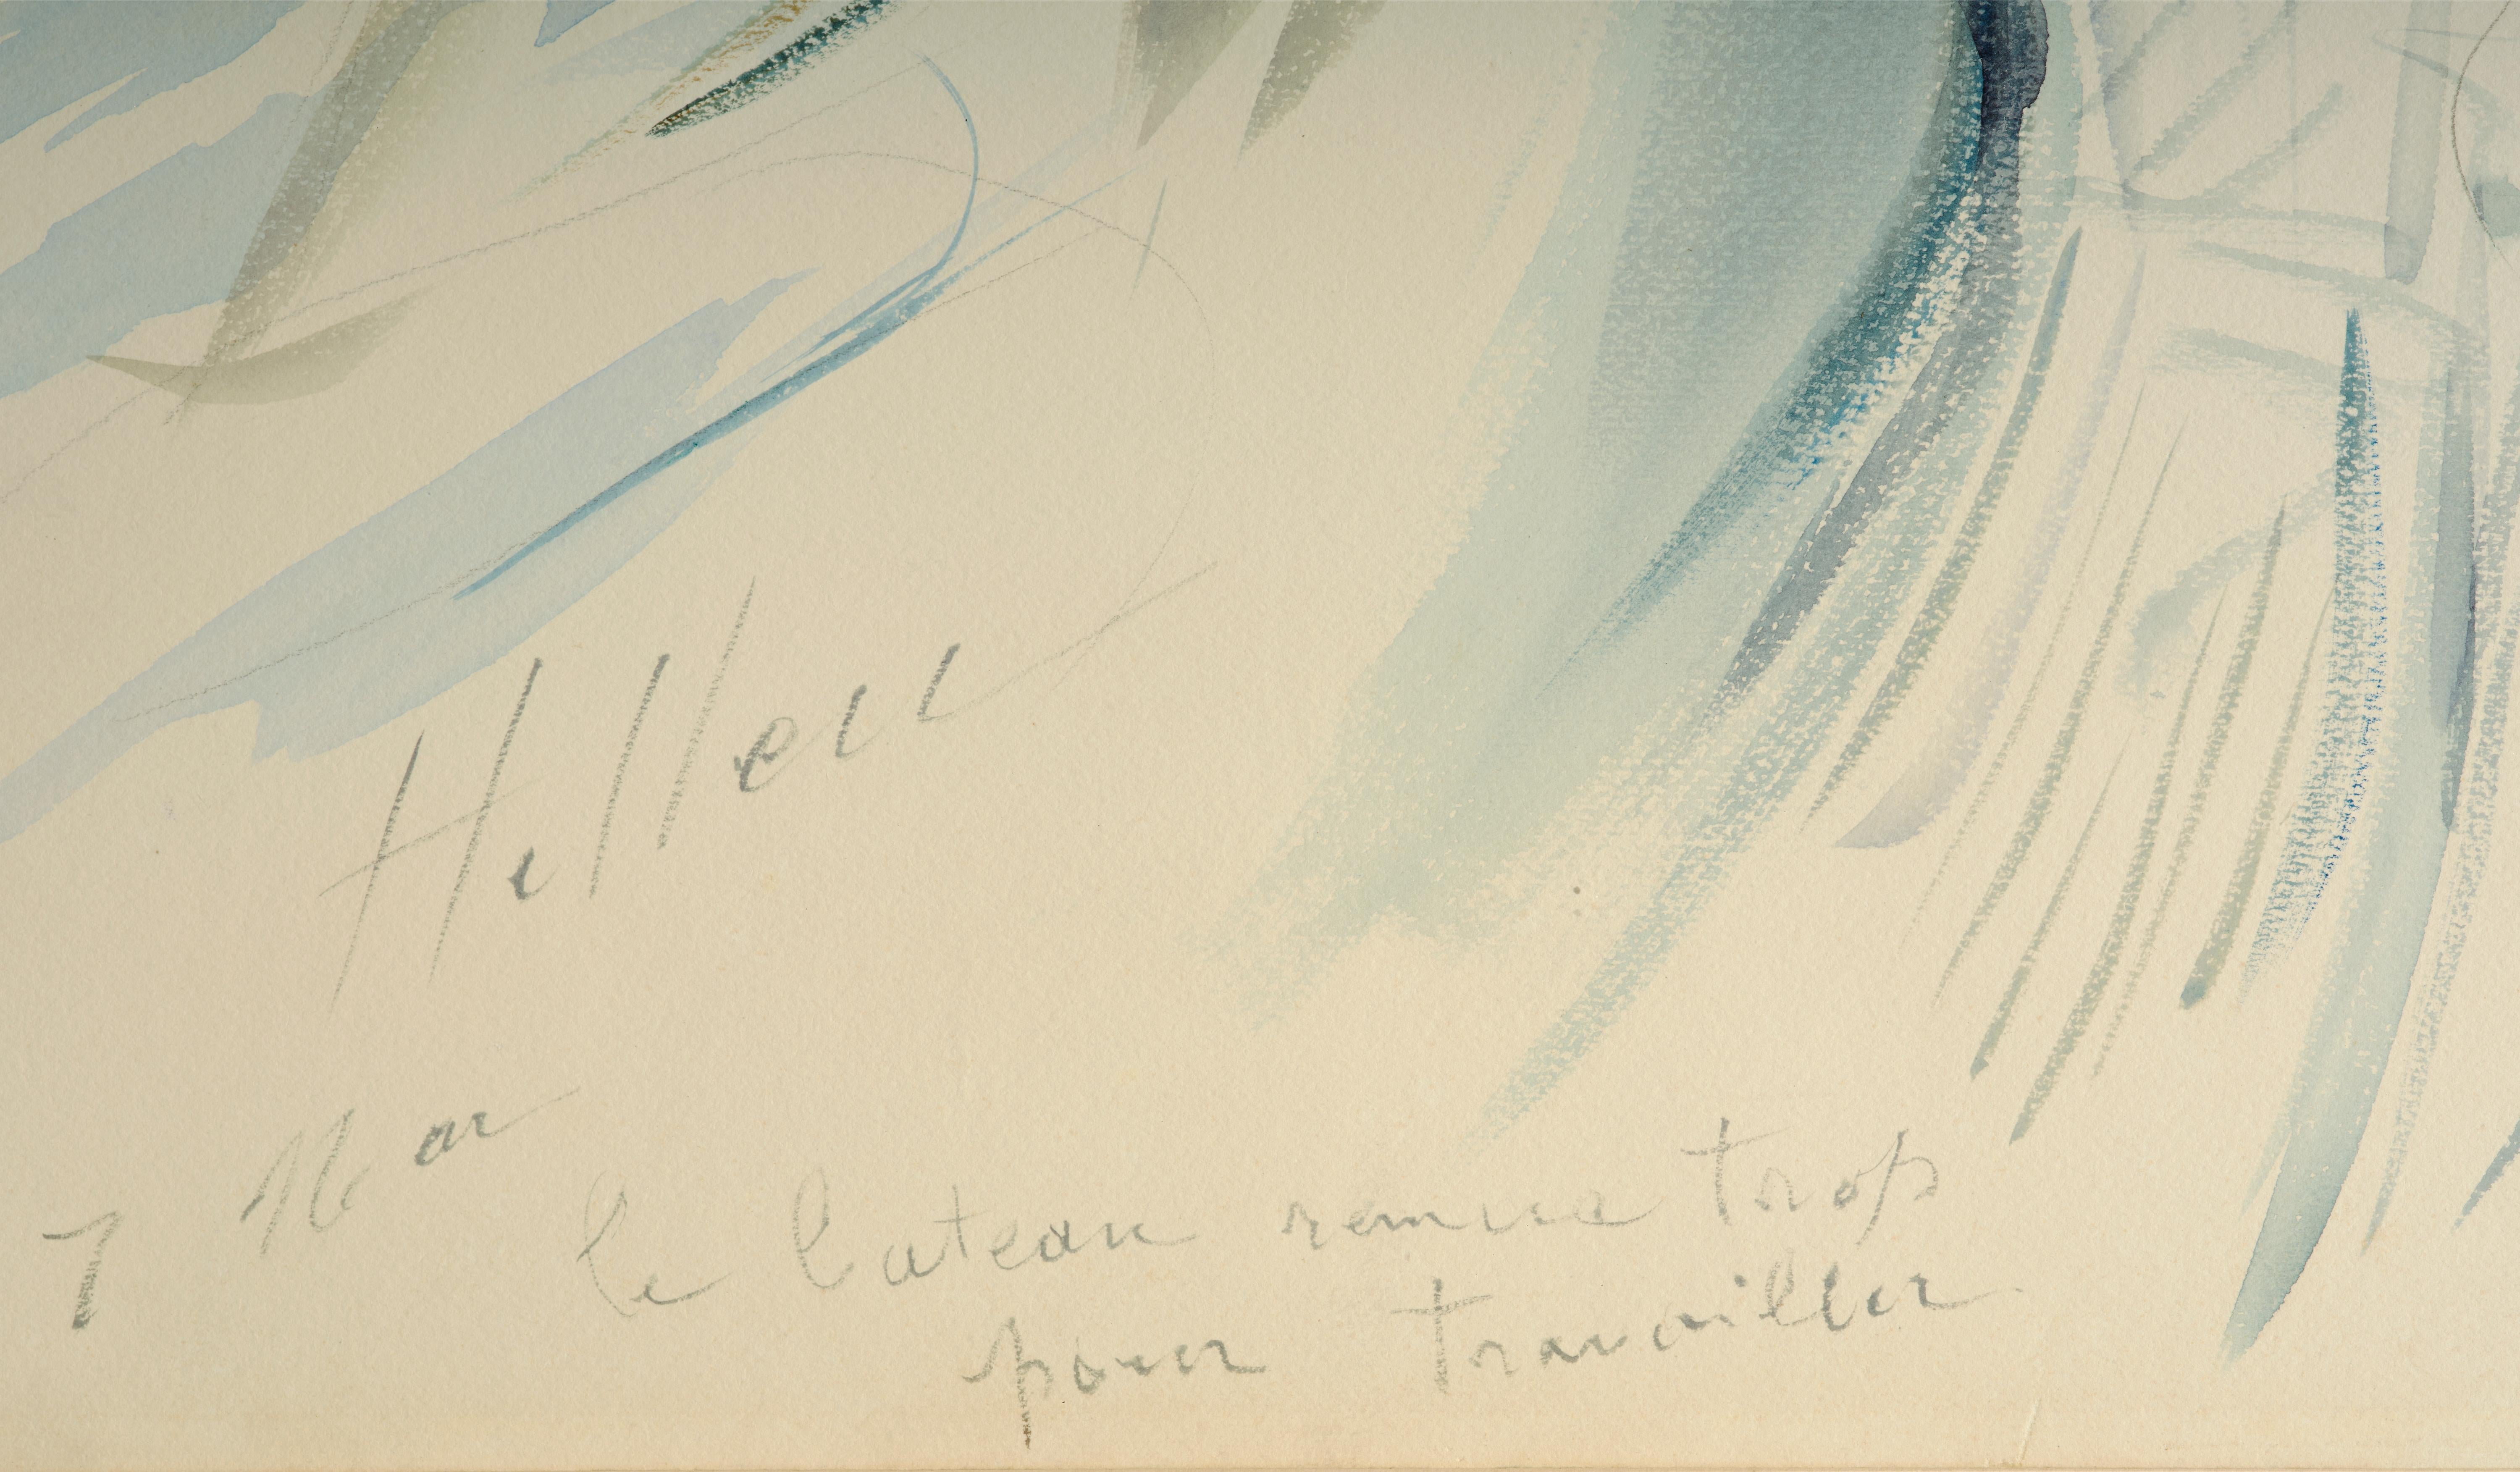 Helleu
7
le bateau remue trop
pour travailler